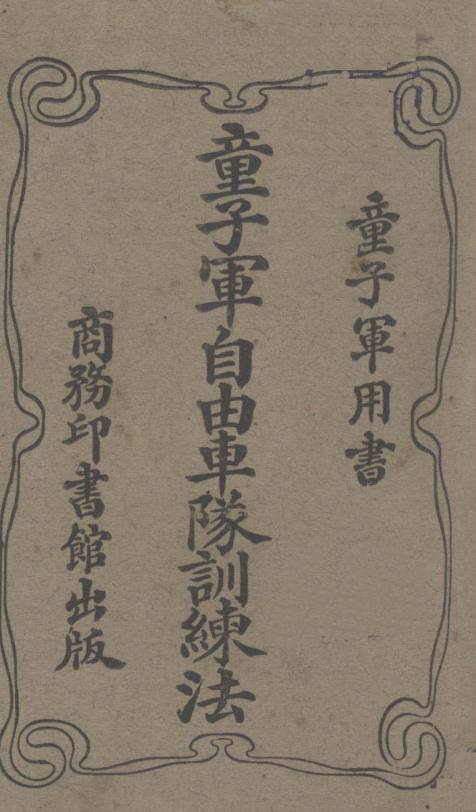 童子軍用書
童子軍自由車隊訓練法
商務印書館出版